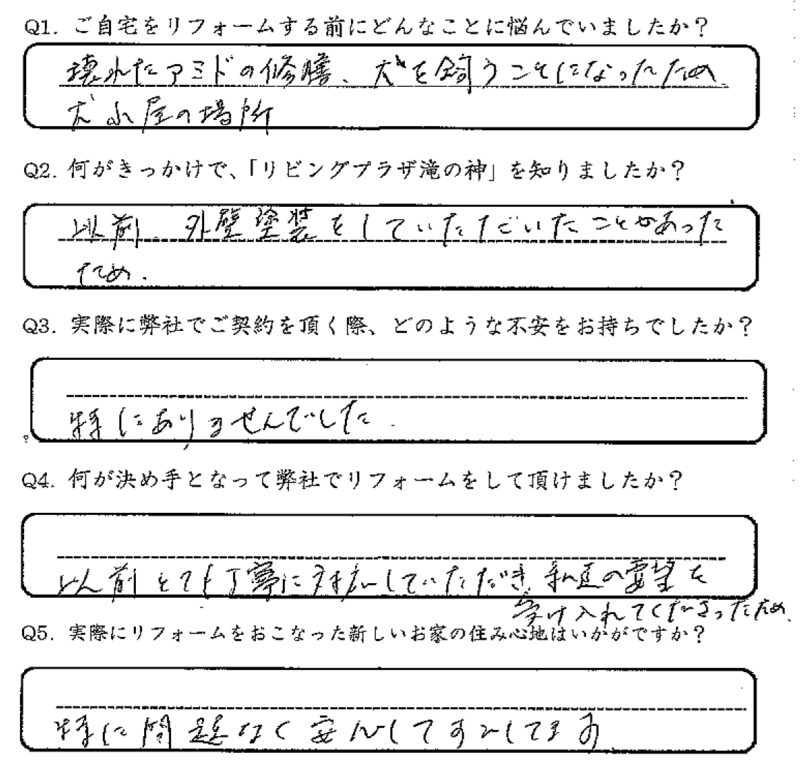 Q1. ご自宅をリフォームする前にどんなことに悩んでいましたか？
壊れたアミドの修膳、犬を飼うことになったため
犬小屋の場所
Q2. 何がきっかけで、「リビングプラザ滝の神」を知りましたか？
以前、外壁塗装をしていただいたことがあった
ため.
Q3. 実際に弊社でご契約を頂く際、どのような不安をお持ちでしたか？
特にありませんでした.
Q4. 何が決め手となって弊社でリフォームをして頂けましたか？
以前とても丁寧に対応していただき、私達の要望を
受け入れてくださったため.
Q5. 実際にリフォームをおこなった新しいお家の住み心地はいかがですか？
特に問題なく安心してすごしてます